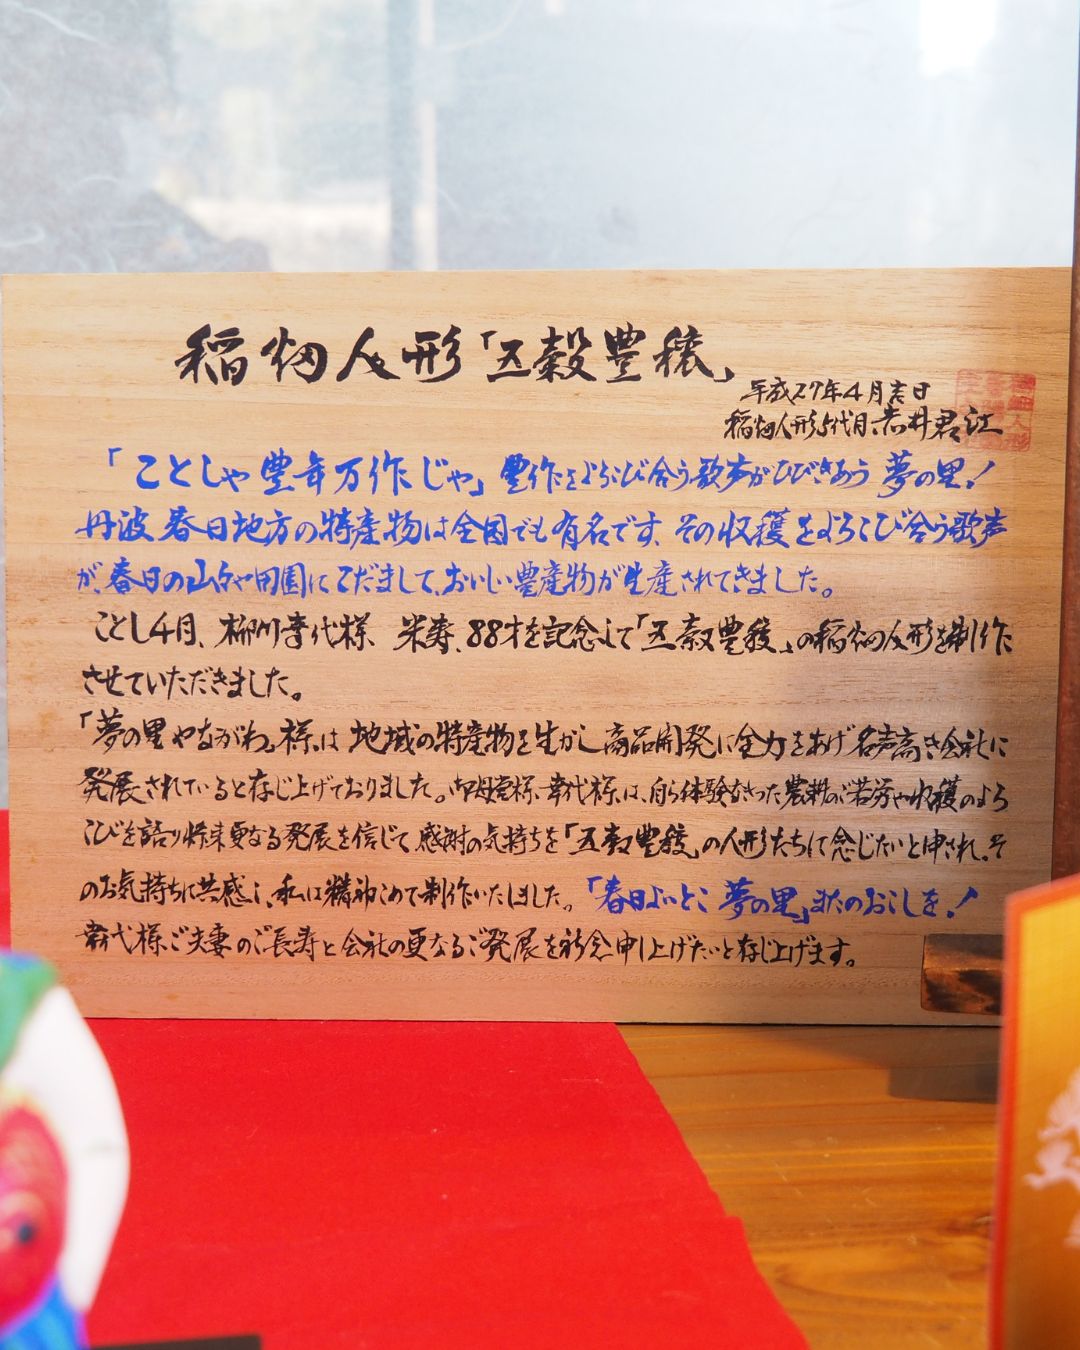 稲畑人形「五穀豊穣」
平成27年4月吉日
稲畑人形5代目 赤井君江
「ことしゃ豊年万作じゃ」豊作をよろこび合う歌声がひびきあう 夢の里！
丹波春日地方の特産物は全国でも有名です、その収穫をよろこび合う歌声
が、春日の山々や田園にこだまして、おいしい農産物が生産されてきました。
ことし4月、柳川幸代様、米寿、88才を記念して「五穀豊穣」の稲畑人形を制作
させていただきました。
「夢の里やながわ」様は地域の特産物を生かし商品開発に全力をあげ名声高き会社に
発展されていると存じ上げておりました。御母堂様、幸代様は、自ら体験なさった農耕のご苦労や収穫のよろ
こびを語り将来更なる発展を信じて感謝の気持ちを「五穀豊穣」の人形たちに念じたいと申され、そ
のお気持ちに共感し、私は精神こめて制作いたしました。「春日よいとこ 夢の里」またのおこしを！
幸代様ご夫妻のご長寿と会社の更なるご発展を祈念申し上げたいと存じ上げます。